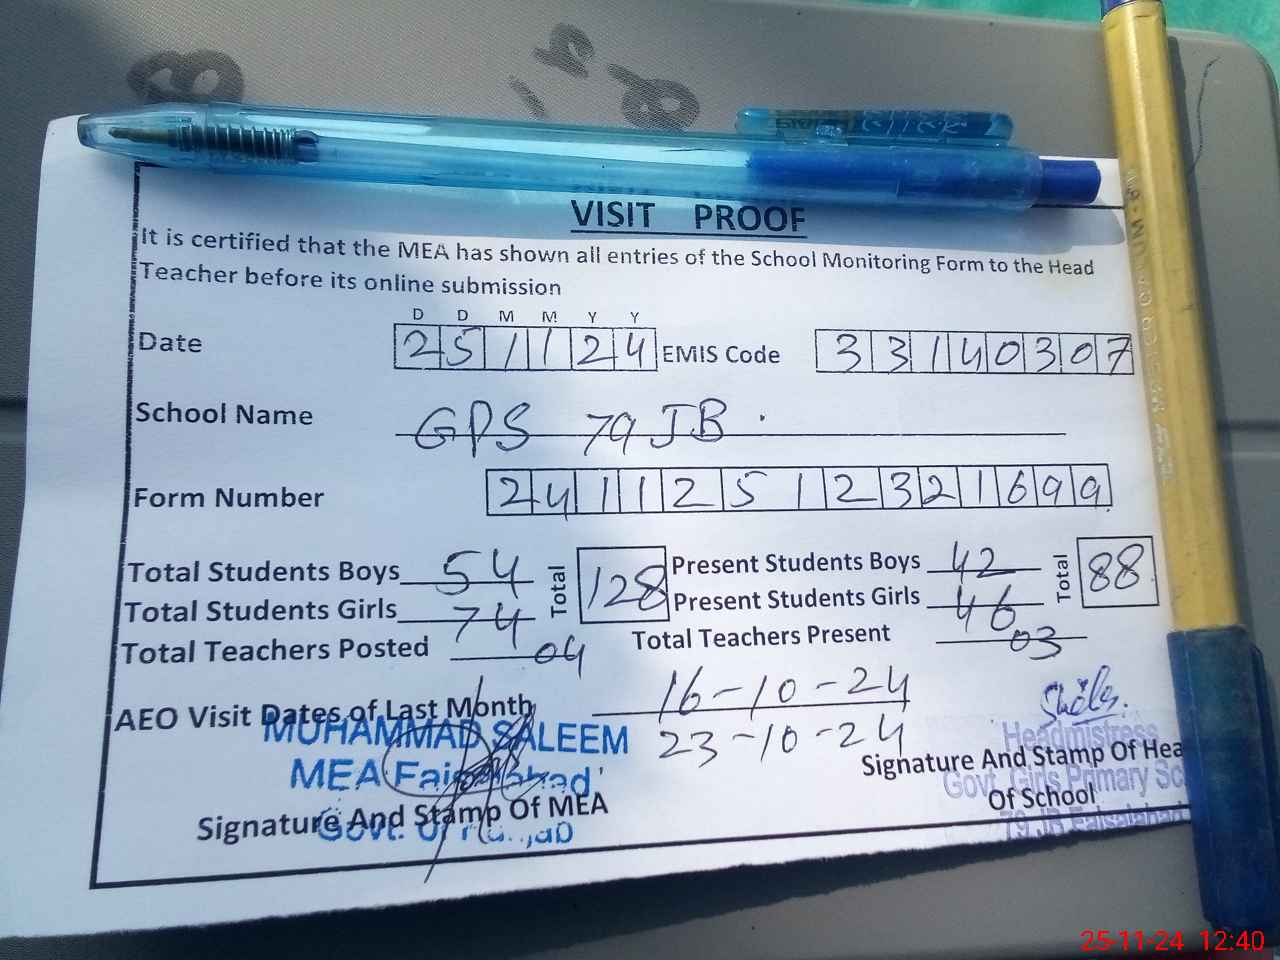 VISIT PROOF
It is certified that the MEA has shown all entries of the School Monitoring Form to the Head
Teacher before its online submission
D D M M Y Y
Date 251124 EMIS Code 33140307
School Name GPS 79 JB.
Form Number 24112512321699
Total Students Boys 54 Total 128 Present Students Boys 42 Total 88
Total Students Girls 74 Present Students Girls 46
Total Teachers Posted 04 Total Teachers Present 03
AEO Visit Dates of Last Month 16-10-24
23-10-24
MUHAMMAD SALEEM
MEA Faisalabad
Govt. Of Punjab
Signature And Stamp Of MEA
Headmistress
Govt. Girls Primary Sc
79 JB Faisalabad
Signature And Stamp Of Hea
Of School
25-11-24 12:40